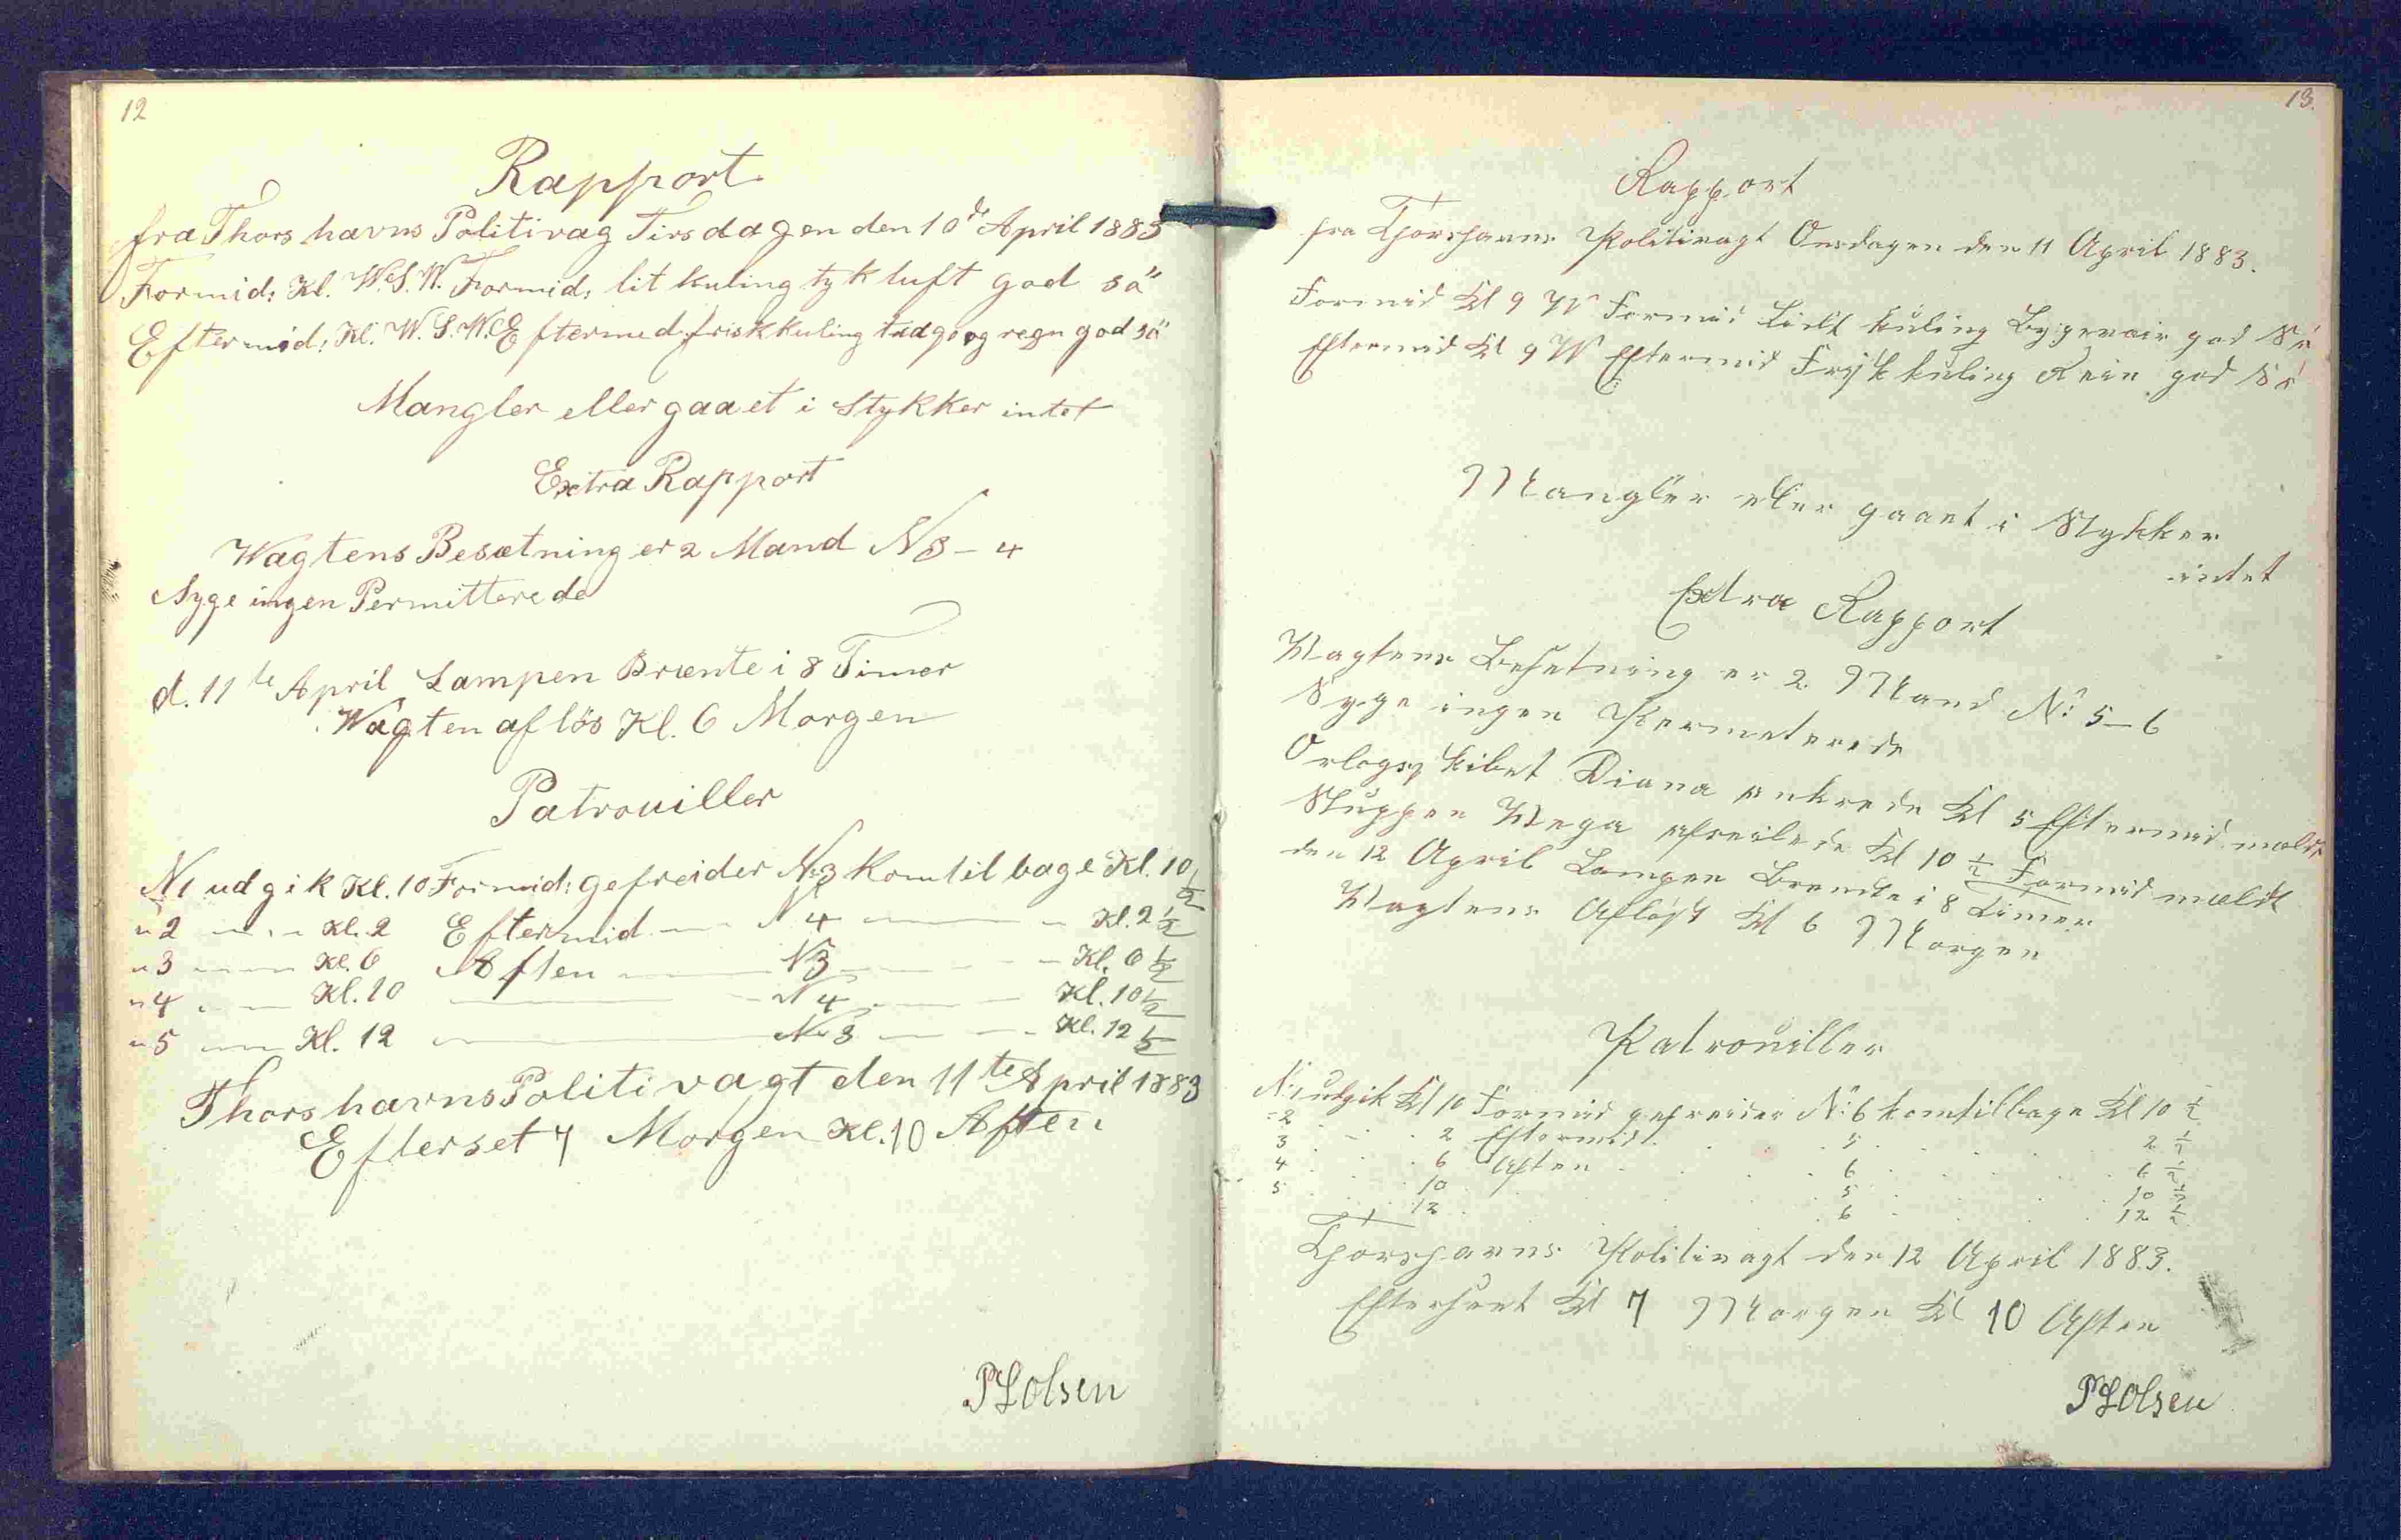 12
Rapport
fra Thorshavns Politivag Tirsdagen den 10de April 1883
Formid: Kl. W.S.W. Formid: lit kuling tyk luft god sö
Eftermid: Kl. W.S.W. Eftermed. frisk kuling og regn god sö
Mangler eller gaaet i Stykker intet
Extra Rapport
Wagtens Besætning er 2 Mand N 3 - 4
Syge ingen Permitterede
d. 11te April Lampen Brænte i 8 Timer
Wagten aflös Kl. 6 Morgen
Patrouiller
N1 udgik Kl. 10 Formid: gefreider N 3 kom tilbage Kl. 10 1/2
" 2 — " — Kl. 2 Eftermid — N 4 — — Kl. 2 1/2
" 3 — — Kl. 6 Aften — N3 — — Kl. 6 1/2
" 4 — — Kl. 10 — — N 4 — — Kl. 10 1/2
" 5 — — Kl. 12 — — N 3 — — Kl. 12 1/2
Thorshavns Politivagt den 11te April 1883
Efterset 7 Morgen Kl. 10 Aften
PLOlsen
13.
Rapport
fra Thorshavns Politivagt Onsdagen den 11 April 1883.
Formid Kl 9 W Formid Lidt kuling Bygevair god Sö
Eftermid Kl 9 W Eftermid Frisk kuling Rein god Sö
Mangler eller gaaet i Stykker
intet
Extra Rapport
Wagtens Besetning er 2 Mand No 5 - 6
Syge ingen Permeterede
Orlogsskibet Diana ankrede Kl 5 Eftermid mældt
Sluppen Wega afseilede Kl 10 1/2 Formid mældt
den 12 April Lampen Brendte i 8 Timer
Wagtens Afløst Kl 6 Morgen
Patrouiller
No 1 udgik Kl 10 Formid gefreider No 6 kom tilbage Kl 10 1/2
2 . . . 2 Eftermid . . 5 . . . 2 1/2
3 . . . 6 Aften . . 6 . . . 6 1/2
4 . . . 10 . . . 5 . . . 10 1/2
5 . . . 12 . . . 6 . . . 12 1/2
Thorshavns Politivagt den 12 April 1883.
Efterseet Kl 7 Morgen Kl 10 Aften
PLOlsen